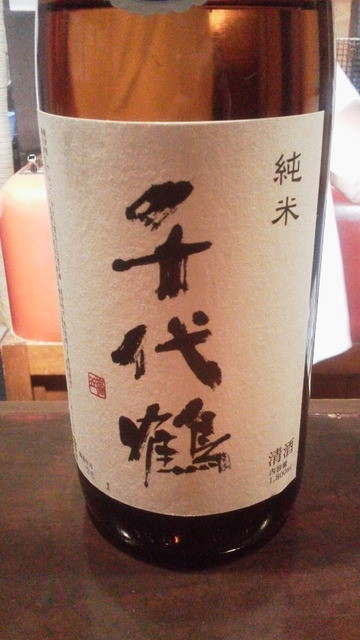 純米
千代鶴
清酒
内容量
1,800ml